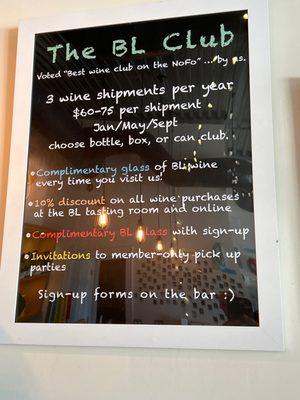 The BL Club
Voted "Best wine club on the NoFo" ... by us.
3 wine shipments per year
$60-75 per shipment
Jan/May/Sept
choose bottle, box, or can club.
•Complimentary glass of BL wine
every time you visit us!
•10% discount on all wine purchases
at the BL tasting room and online
•Complimentary BL glass with sign-up
•Invitations to member-only pick up
parties
Sign-up forms on the bar :)